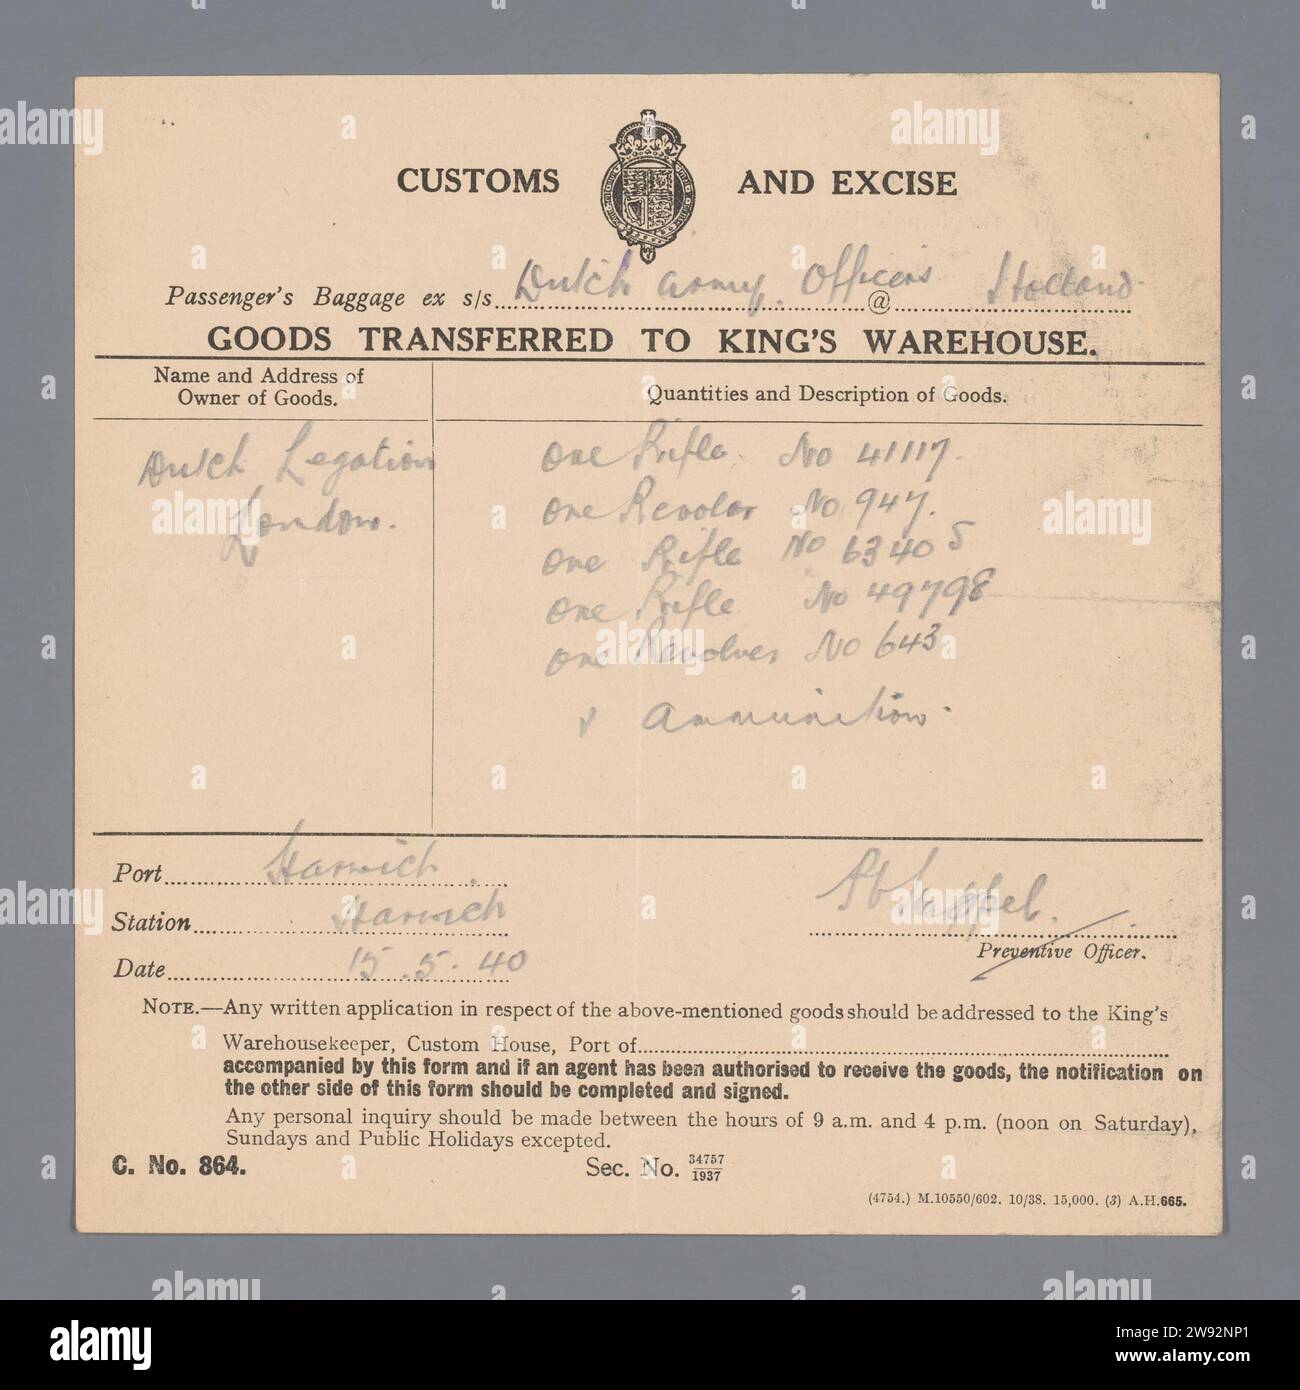 CUSTOMS AND EXCISE
Passenger's Baggage ex s/s Dutch Army Officers @ Holland
GOODS TRANSFERRED TO KING'S WAREHOUSE.
Name and Address of
Owner of Goods.
Quantities and Description of Goods.
Dutch Legation
London.
One Rifle. No 41117.
One Revolar No 947.
One Rifle No 63405
One Rifle No 49798
One Revolver No 643
& Ammunition.
Port Harwich.
Station Harwich
Date 15.5.40
Preventive Officer.
NOTE.—Any written application in respect of the above-mentioned goods should be addressed to the King's
Warehousekeeper, Custom House, Port of
accompanied by this form and if an agent has been authorised to receive the goods, the notification on
the other side of this form should be completed and signed.
Any personal inquiry should be made between the hours of 9 a.m. and 4 p.m. (noon on Saturday),
Sundays and Public Holidays excepted.
C. No. 864.
Sec. No. 34757/1937
(4754.) M.10550/602. 10/38. 15,000. (3) A.H.665.
alamy
Image ID: 2W92NP1
www.alamy.com